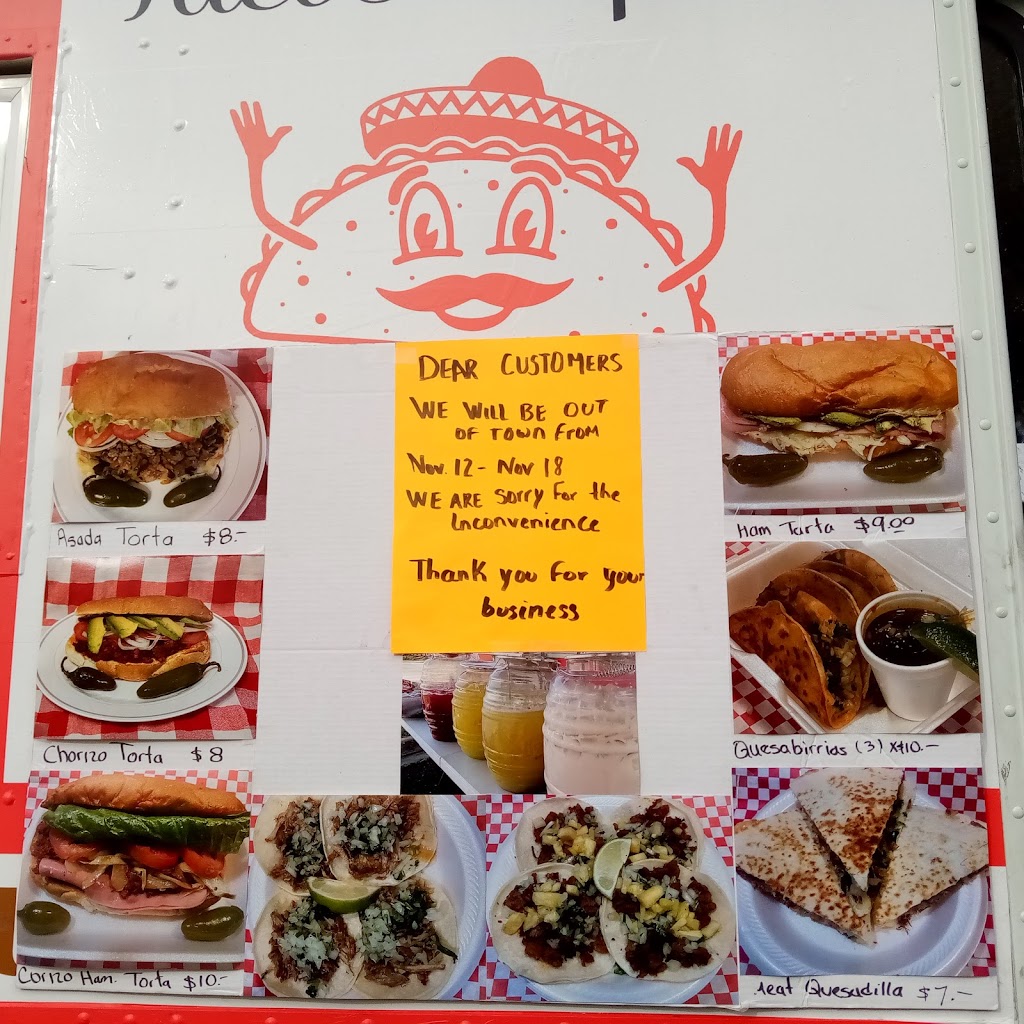 DEAR CUSTOMERS
WE WILL BE OUT
OF TOWN FROM
Nov. 12 - Nov 18
WE ARE SORRY For the
Inconvenience
Thank you For your
business
Asada Torta $8.-
Chorizo Torta $8
Corizo Ham. Torta $10.-
Ham Torta $9.00
Quesabirrias (3) x$10.-
Meat Quesadilla $7.-